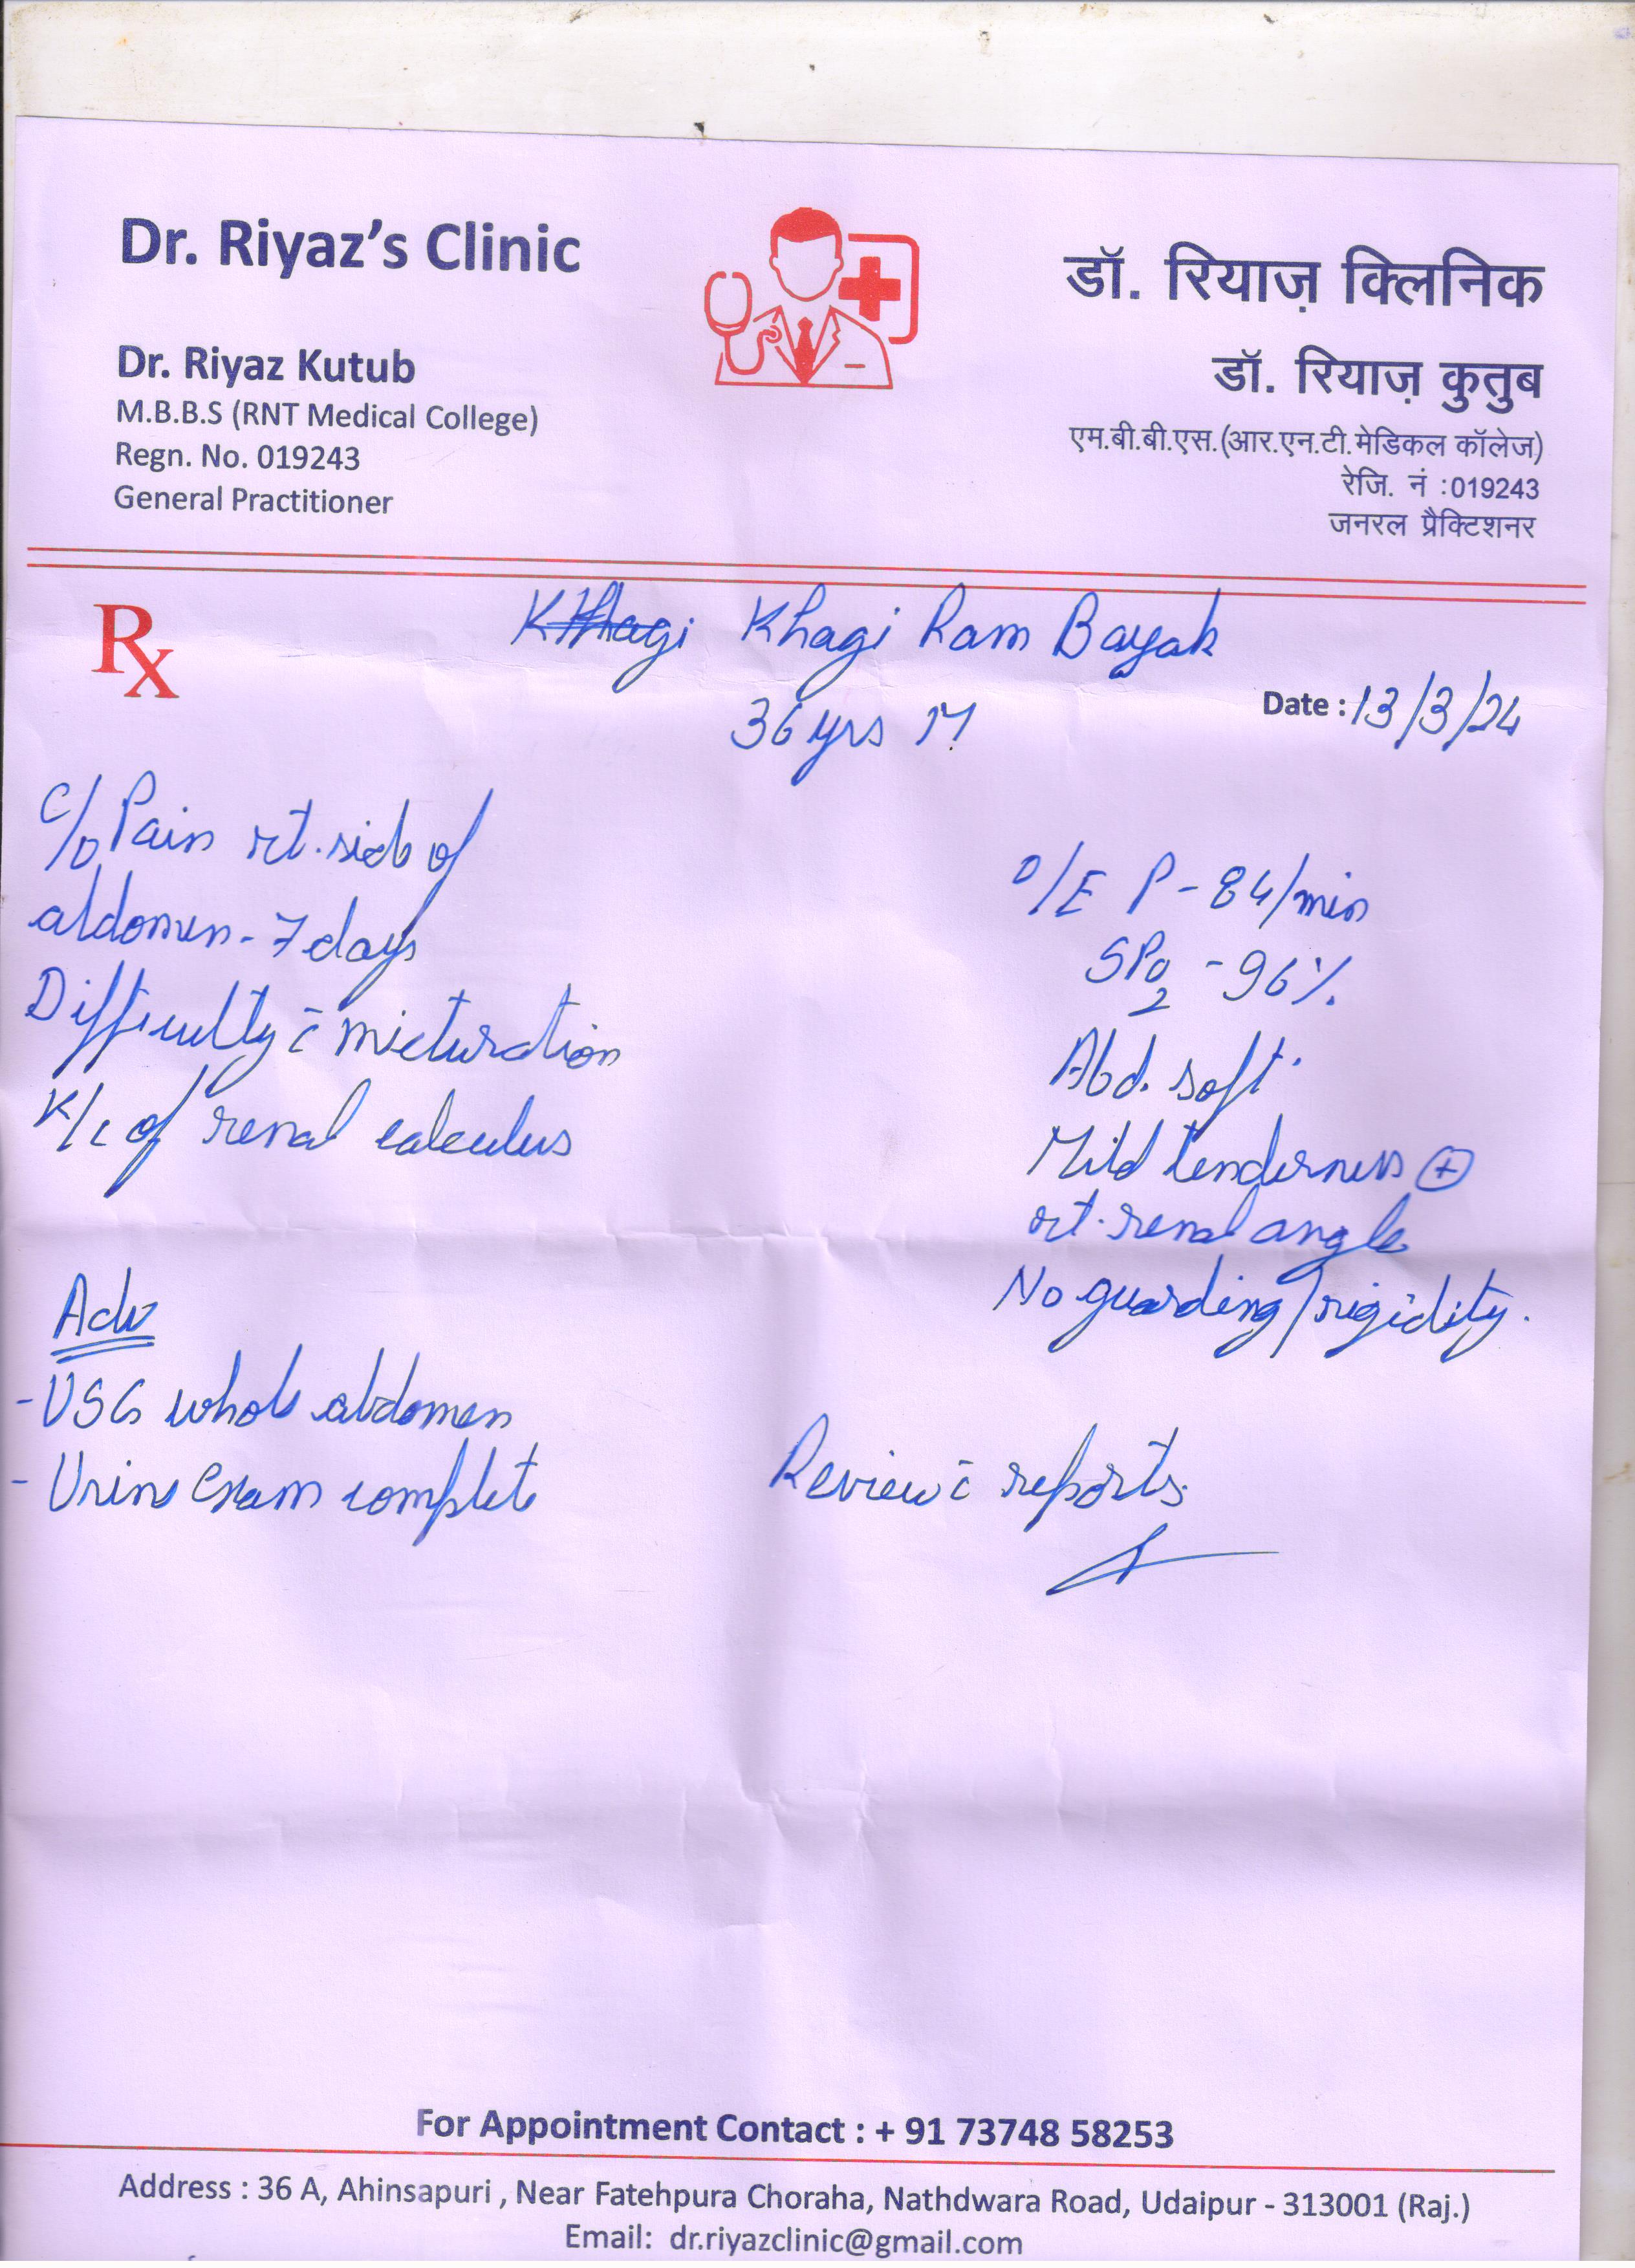 Dr. Riyaz's Clinic
Dr. Riyaz Kutub
M.B.B.S (RNT Medical College)
Regn. No. 019243
General Practitioner
डॉ. रियाज़ क्लिनिक
डॉ. रियाज़ कुतुब
एम.बी.बी.एस.(आर.एन.टी.मेडिकल कॉलेज)
रेजि. नं :019243
जनरल प्रैक्टिशनर
Rx
Khagi Ram Bayak
36 yrs M
Date : 13/3/24
C/o Pain rt. side of
abdomen - 7 days
Difficulty c̄ micturation
K/c of renal calculus
O/E P - 84/min
SPO2 - 96%
Abd. soft.
Mild tenderness ⊕
rt. renal angle
No guarding/rigidity.
Adv
- USG whole abdomen
- Urine Exam complete
Review c̄ reports
For Appointment Contact : + 91 73748 58253
Address : 36 A, Ahinsapuri , Near Fatehpura Choraha, Nathdwara Road, Udaipur - 313001 (Raj.)
Email: dr.riyazclinic@gmail.com